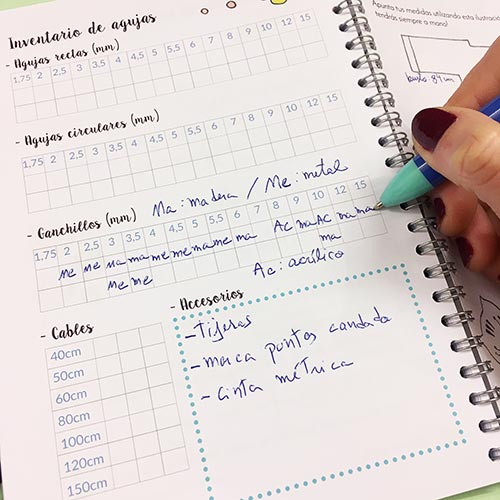 Inventario de agujas
- Agujas rectas (mm)
1,75 2 2,5 3 3,5 4 4,5 5 5,5 6 7 8 9 10 12 15
- Agujas circulares (mm)
1,75 2 2,5 3 3,5 4 4,5 5 5,5 6 7 8 9 10 12 15
Ma: madera / Me: metal
- Ganchillos (mm)
1,75 2 2,5 3 3,5 4 4,5 5 5,5 6 7 8 9 10 12 15
Me Me Ma ma me me ma me ma Ac ma Ac ma ma
Me me ma
Ac: acrílico
- Cables
40cm
50cm
60cm
80cm
100cm
120cm
150cm
- Accesorios
- Tijeras
- marca puntos candado
- cinta métrica
Apunta tus medidas utilizando esta ilustració
tendrás siempre a mano!
busto: 84 cm